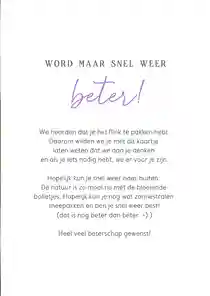 WORD MAAR SNEL WEER
beter!
We hoorden dat je het flink te pakken hebt.
Daarom willen we je met dit kaartje
laten weten dat we aan je denken
en als je iets nodig hebt, we er voor je zijn.
Hopelijk kun je snel weer naar buiten.
De natuur is zo mooi nu met de bloeiende
bolletjes. Hopelijk kun je nog wat zonnestralen
meepakken en ben je snel weer best!
(dat is nog beter dan beter. :-) )
Heel veel beterschap gewenst!